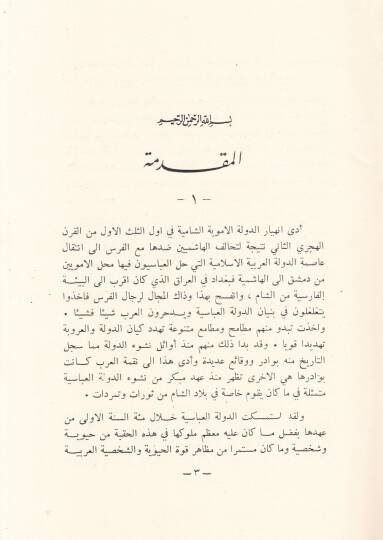 بسم الله الرحمن الرحيم
المقدمة
- ١ -
أدى انهيار الدولة الاموية الشامية في اول الثلث الاول من القرن
الهجري الثاني نتيجة لتحالف الهاشميين ضدها مع الفرس الى انتقال
عاصمة الدولة العربية الاسلامية التي حل العباسيون فيها محل الامويين
من دمشق الى الهاشمية فبغداد في العراق الذي كان اقرب الى البيئة
الفارسية من الشام ، وانفسح بهذا وذاك المجال لرجال الفرس فاخذوا
يتغلغلون في بنيان الدولة العباسية ويدحرون العرب شيئا فشيئا .
واخذت تبدو منهم مطامح ومطامع متنوعة تهدد كيان الدولة والعروبة
تهديدا قويا . وقد بدا ذلك منهم منذ أوائل نشوء الدولة مما سجل
التاريخ منه بوادر ووقائع عديدة وأدى هذا الى نقمة العرب كانت
بوادرها هي الاخرى تظهر منذ عهد مبكر من نشوء الدولة العباسية
متمثلة في ما كان يقوم خاصة في بلاد الشام من ثورات وتمردات .
ولقد استمسكت الدولة العباسية خلال مئة السنة الاولى من
عهدها بفضل ما كان عليه معظم ملوكها في هذه الحقبة من حيوية
وشخصية وما كان مستمرا من مظاهر قوة الحيوية والشخصية العربية
— ٣ —